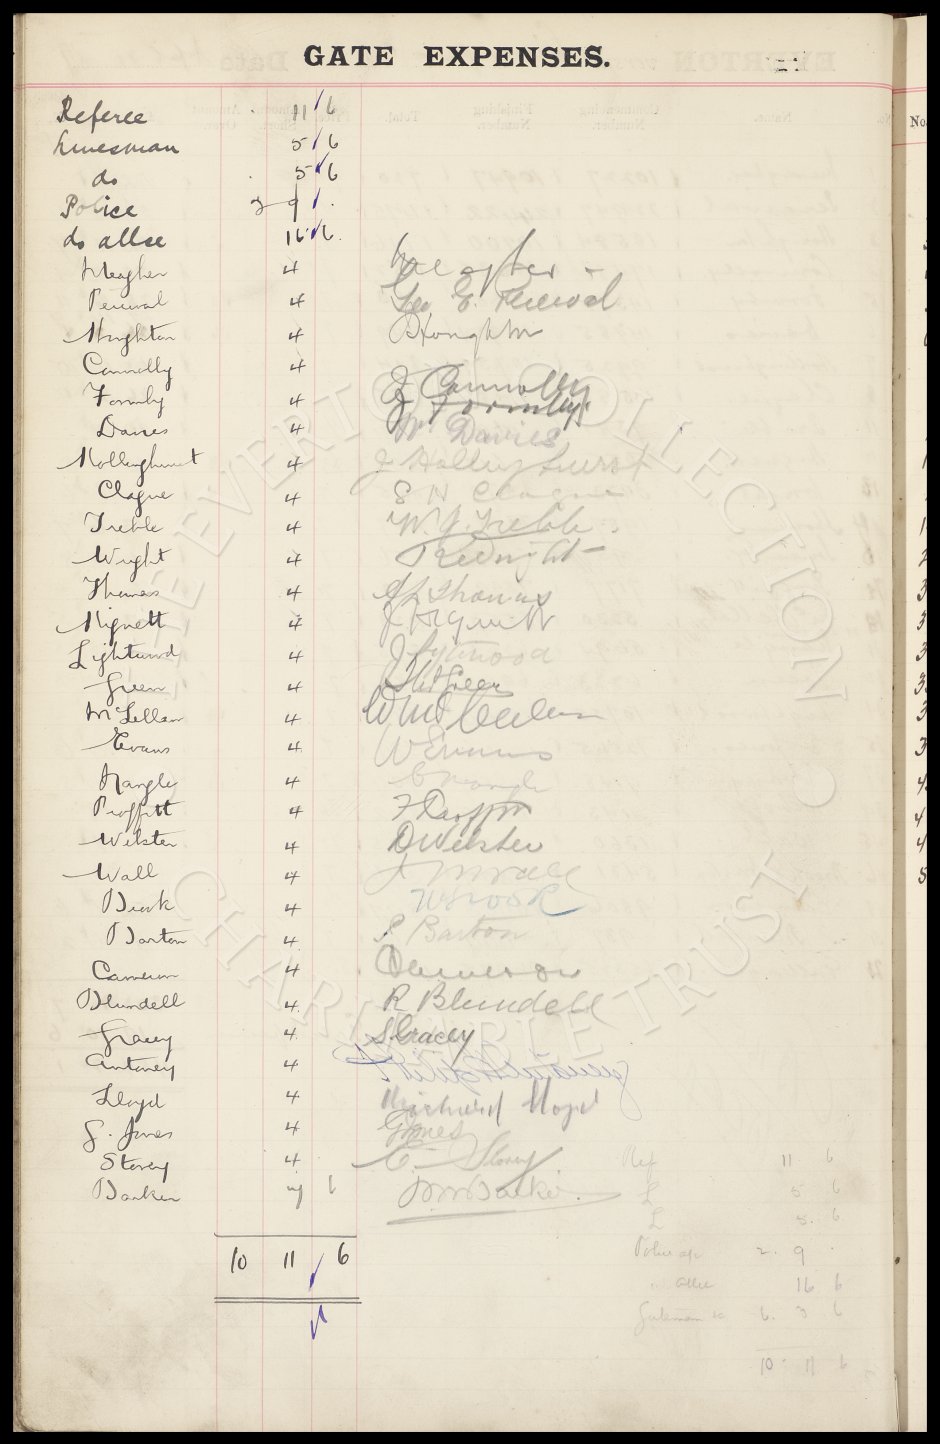 GATE EXPENSES.
Referee 11 6
Linesman 5 6
do 5 6
Police 2 9 .
do allce 16 6
Meagher 4
Percival 4 Geo E. Percival
Houghton 4 Houghton
Connolly 4 J Connolly
Formby 4 J Formby
Davies 4 W. Davies
Hollinghurst 4 J Hollinghurst
Clague 4 S H Clague
Treble 4 W. J. Treble
Wright 4
Thomas 4 Thomas
Mignett 4
Lightwood 4 J Lightwood
Green 4 Green
McLellan 4
Evans 4 W Evans
Nangle 4 Nangle
Proffitt 4 F Proffitt
Webster 4 D Webster
Wall 4 Wall
Brook 4 W Brook
Barton 4 Barton
Cameron 4 Cameron
Blundell 4 R Blundell
Gracey 4 S. Gracey
Antoney 4
Lloyd 4 Richard Lloyd
G. Jones 4 G Jones
Storey 4 C Storey
Barker 6 Barker
10 11 6
Ref 11 6
L 5 6
L 5. 6
Police 2. 9 .
allce 16 6
Gateman 6. 3 6
10 11 6
No.
THE EVERTON COLLECTION CHARITABLE TRUST ©